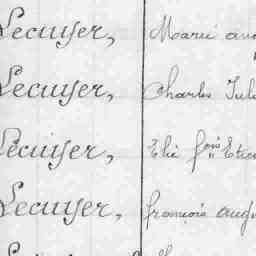 Lecuyer, Marie
Lecuyer, Charles Jul
Lecuyer, Elie fois Etien
Lecuyer, François aug